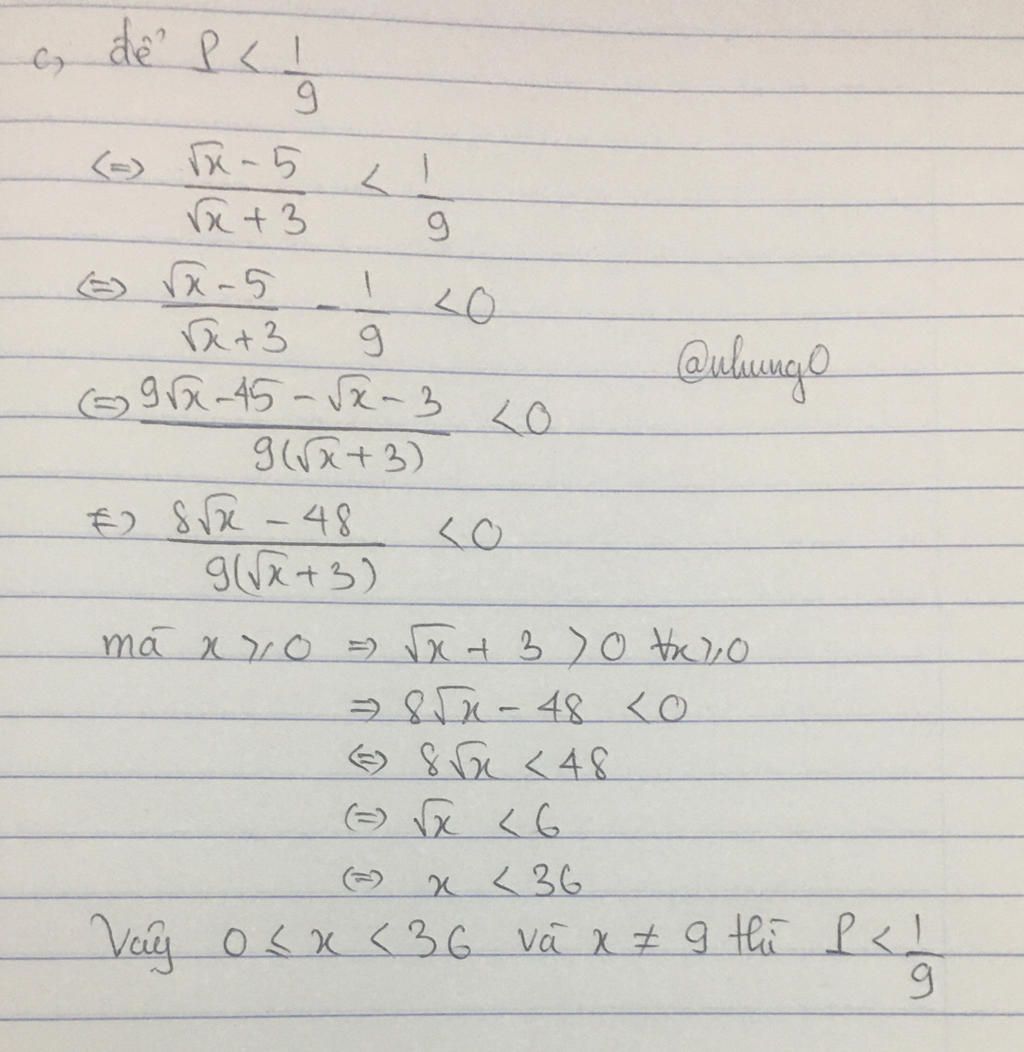 c, để P < 1/9
<=> (√x - 5)/(√x + 3) < 1/9
<=> (√x - 5)/(√x + 3) - 1/9 < 0
@nhung0
<=> (9√x - 45 - √x - 3)/(9(√x + 3)) < 0
<=> (8√x - 48)/(9(√x + 3)) < 0
mà x ⩾ 0 => √x + 3 > 0 ∀x ⩾ 0
=> 8√x - 48 < 0
<=> 8√x < 48
<=> √x < 6
<=> x < 36
Vậy 0 ≤ x < 36 và x ≠ 9 thì P < 1/9